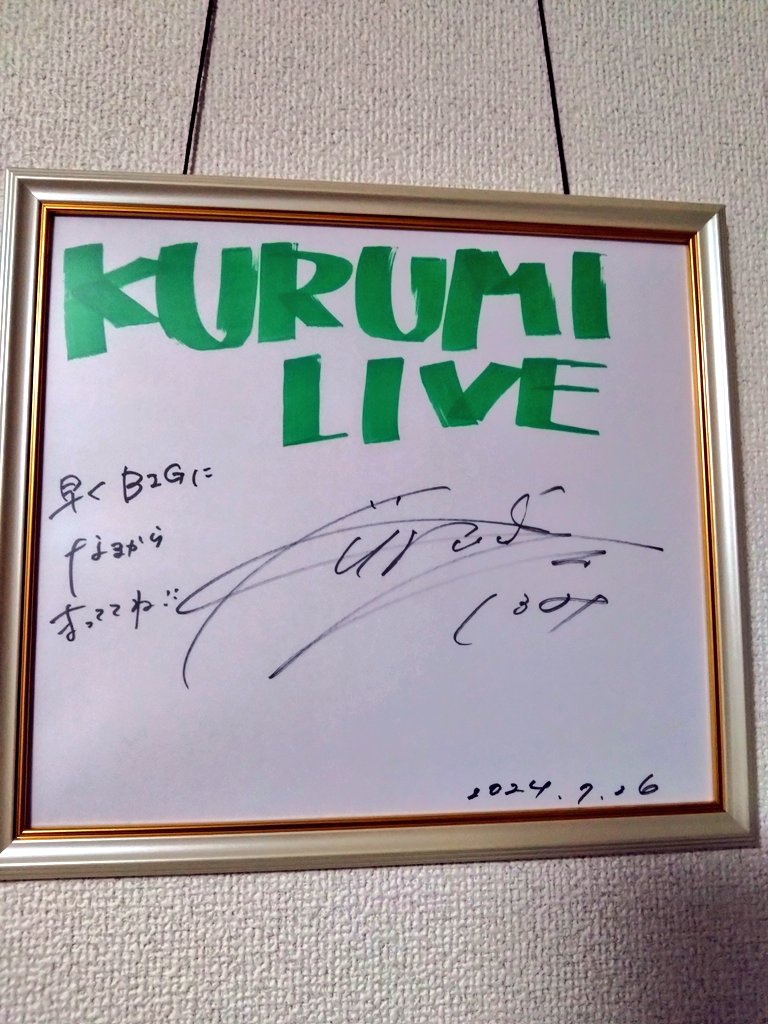 KURUMI
LIVE
早く BIGに
なるから
まっててね!!
2024.7.26